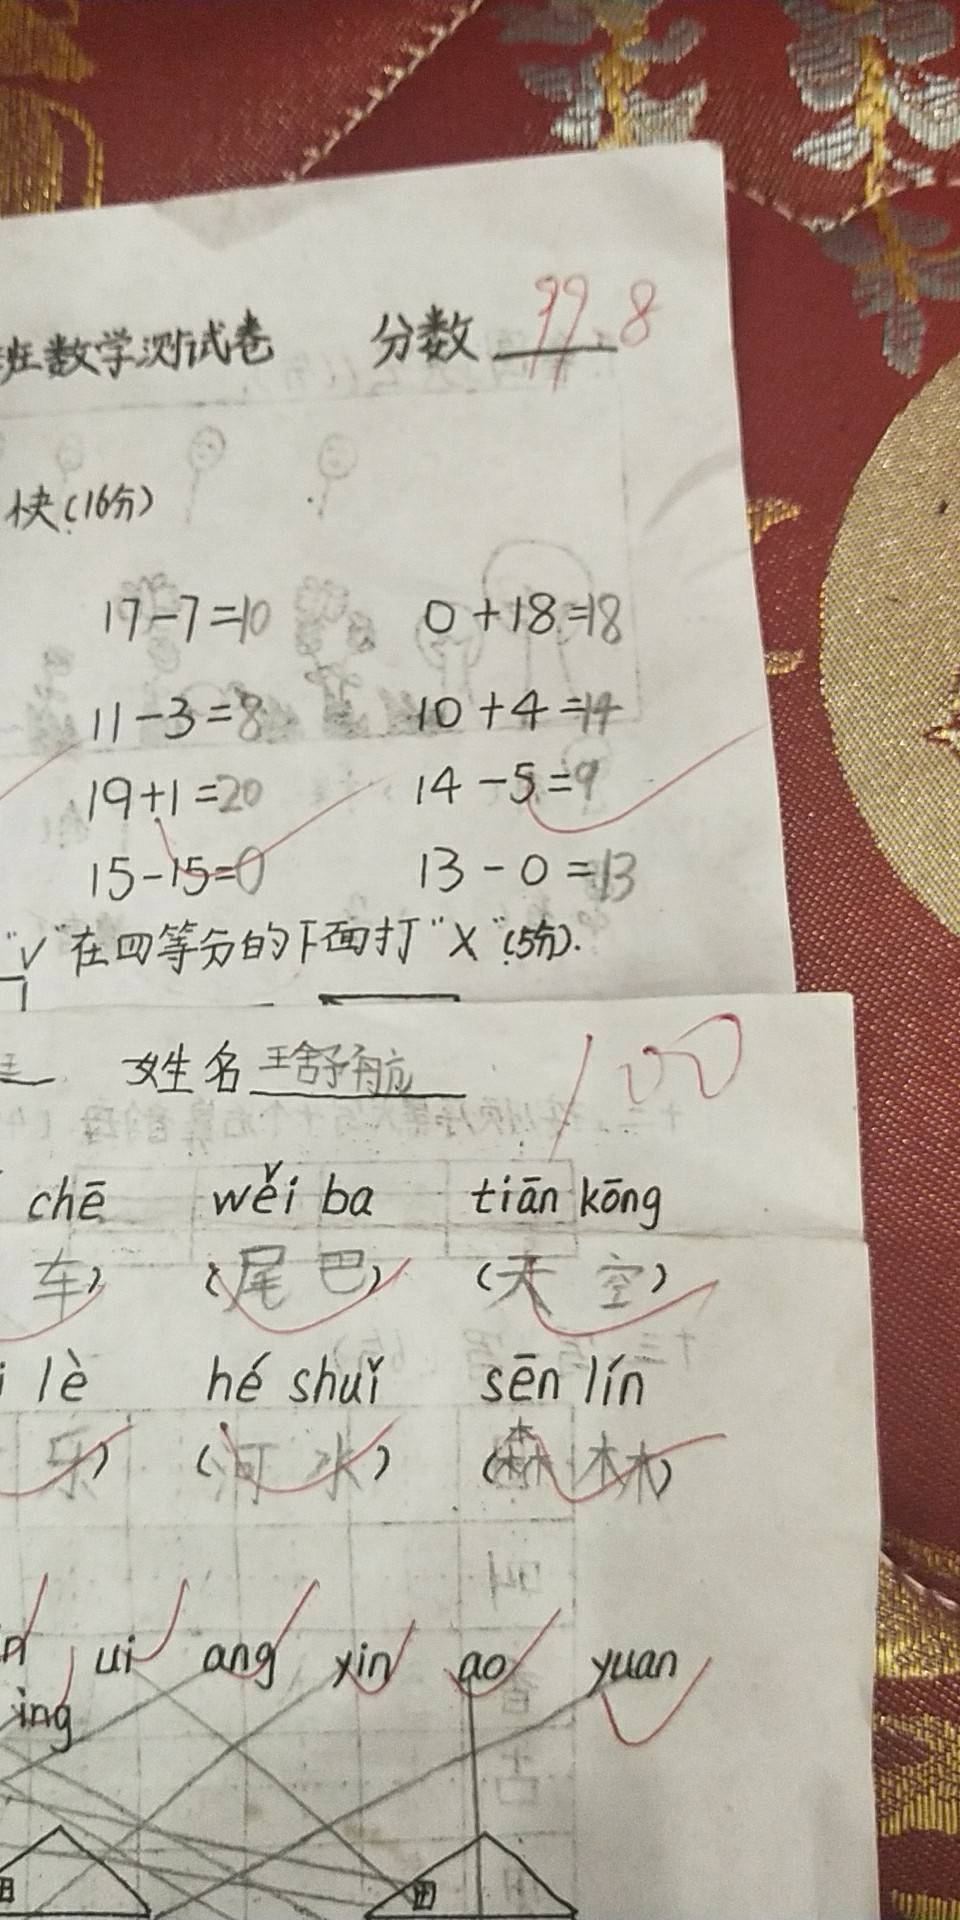 班数学测试卷 分数 99.8
快(16分)
17-7=10 0+18=18
11-3=8 10+4=14
19+1=20 14-5=9
15-15=0 13-0=13
"√"在四等分的下面打"X"(5分).
姓名 王舒航 100
chē wěi ba tiān kōng
车) (尾巴) (天空)
i lè hé shuǐ sēn lín
乐) (河水) (森林)
ui ang yin ao yuan
ing
田 田